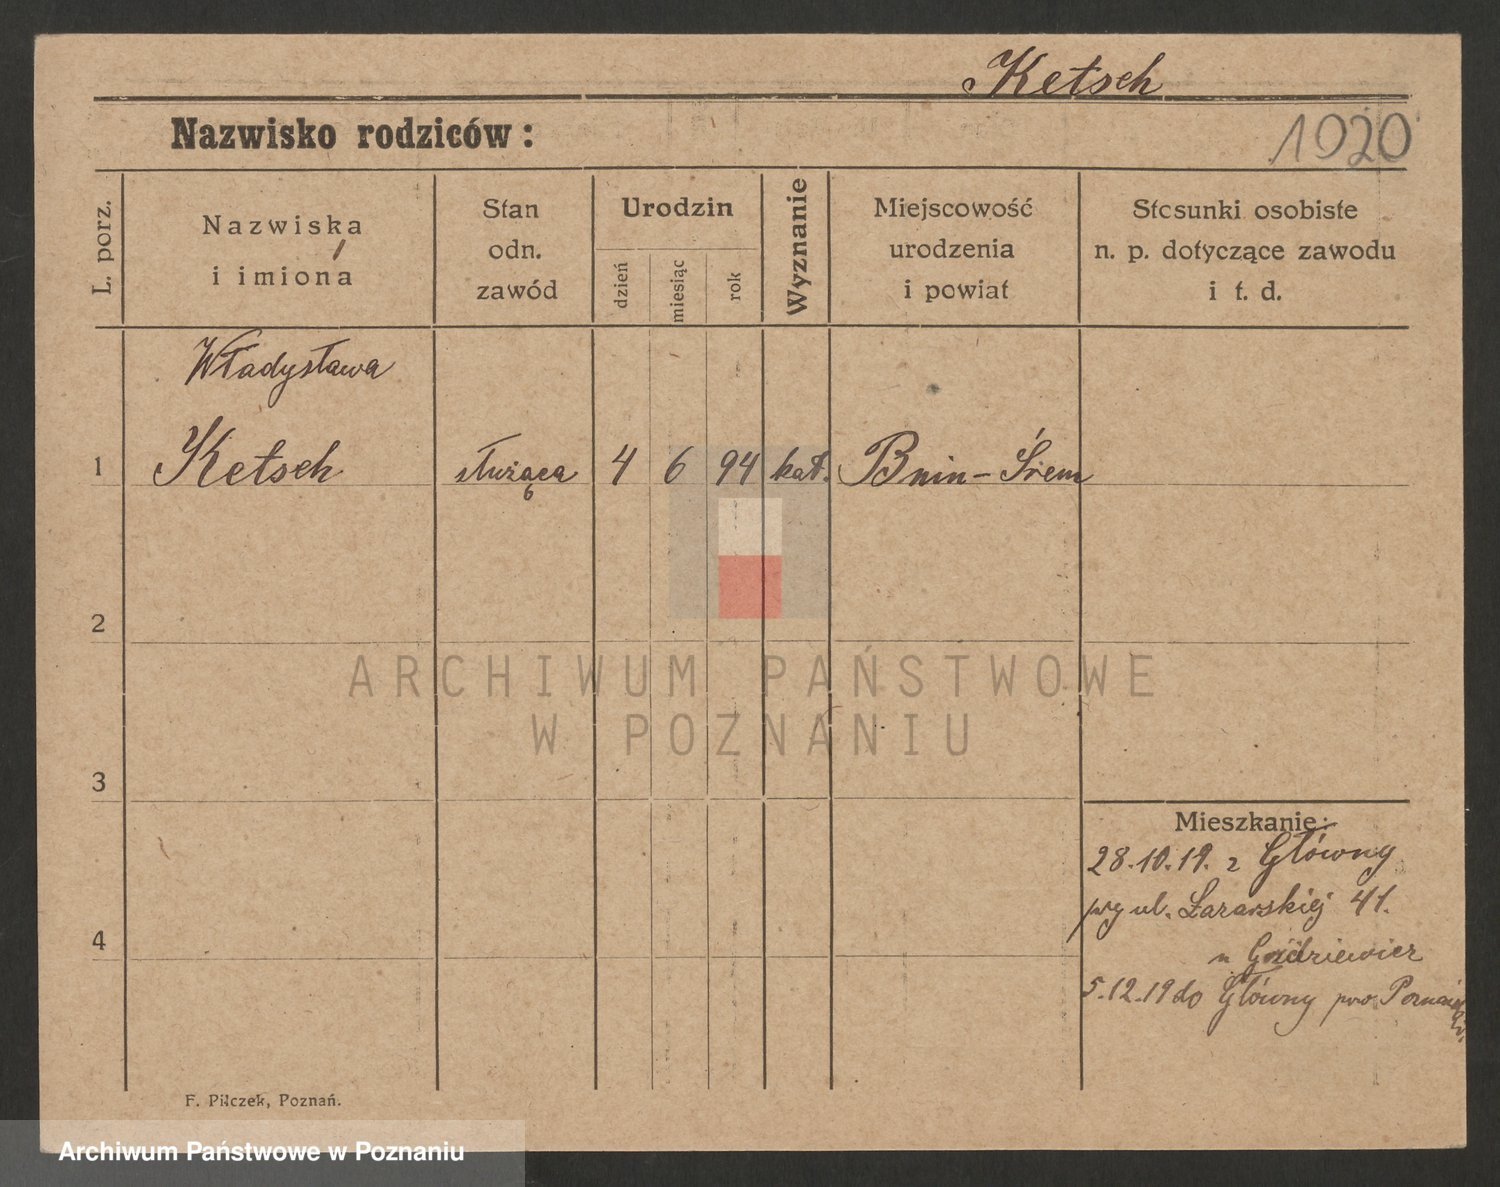 Ketsch
Nazwisko rodziców:
1920
L. porz.
Nazwiska
i imiona
Stan
odn.
zawód
Urodzin
dzień
miesiąc
rok
Wyznanie
Miejscowość
urodzenia
i powiat
Stosunki osobiste
n. p. dotyczące zawodu
i t. d.
Władysława
1 Ketsch służąca 4 6 94 kat. Bnin - Śrem
2
ARCHIWUM PAŃSTWOWE
W POZNANIU
3
Mieszkanie:
28.10.19. z Główny
ul. 41.
4
5.12.19 do Główny
F. Pilczek, Poznań.
Archiwum Państwowe w Poznaniu